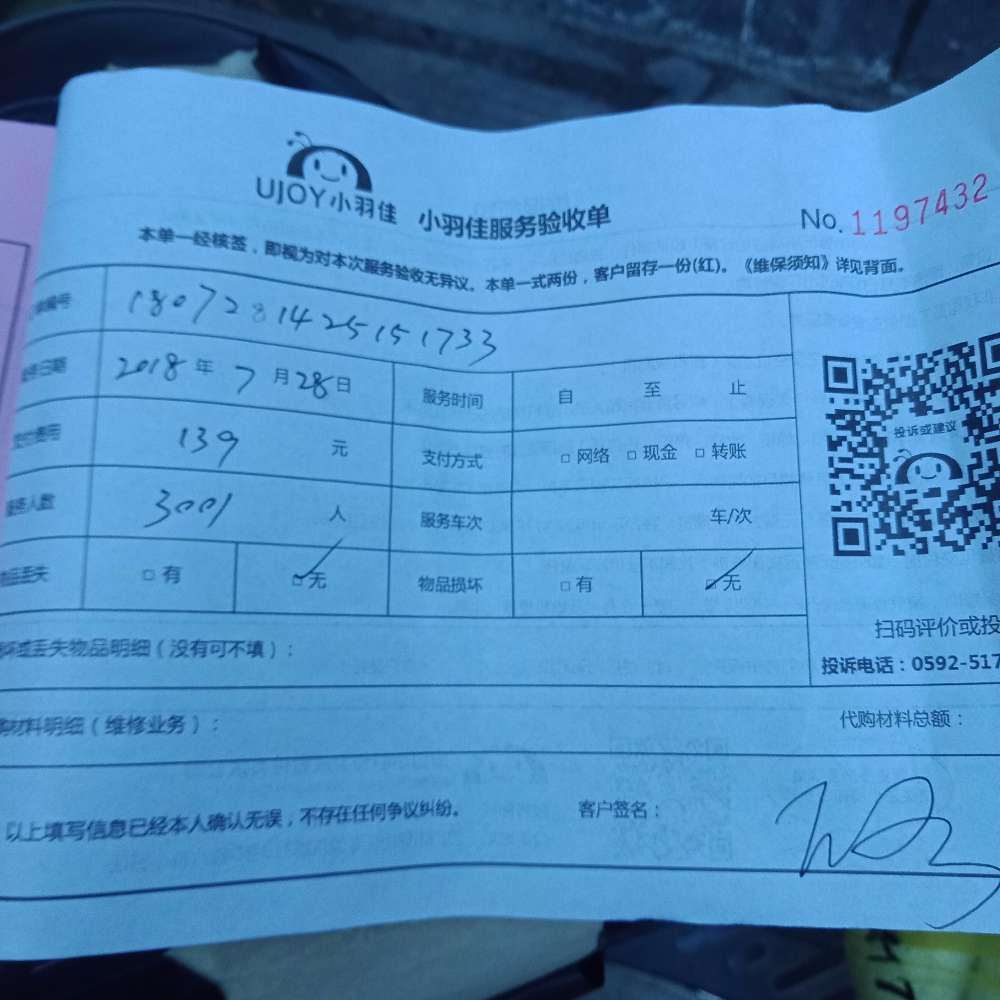 UJOY小羽佳 小羽佳服务验收单 No. 1197432
本单一经核签，即视为对本次服务验收无异议。本单一式两份，客户留存一份(红)。《维保须知》详见背面。
编号 1807281425151733
日期 2018年7月28日 服务时间 自 至 止
费用 139 元 支付方式 □ 网络 □ 现金 □ 转账
人数 3001 人 服务车次 车/次
投诉或建议
物品丢失 □ 有 □ 无 物品损坏 □ 有 □ 无
扫码评价或投
丢失物品明细（没有可不填）：
投诉电话：0592-517
材料明细（维修业务）： 代购材料总额：
以上填写信息已经本人确认无误，不存在任何争议纠纷。 客户签名：